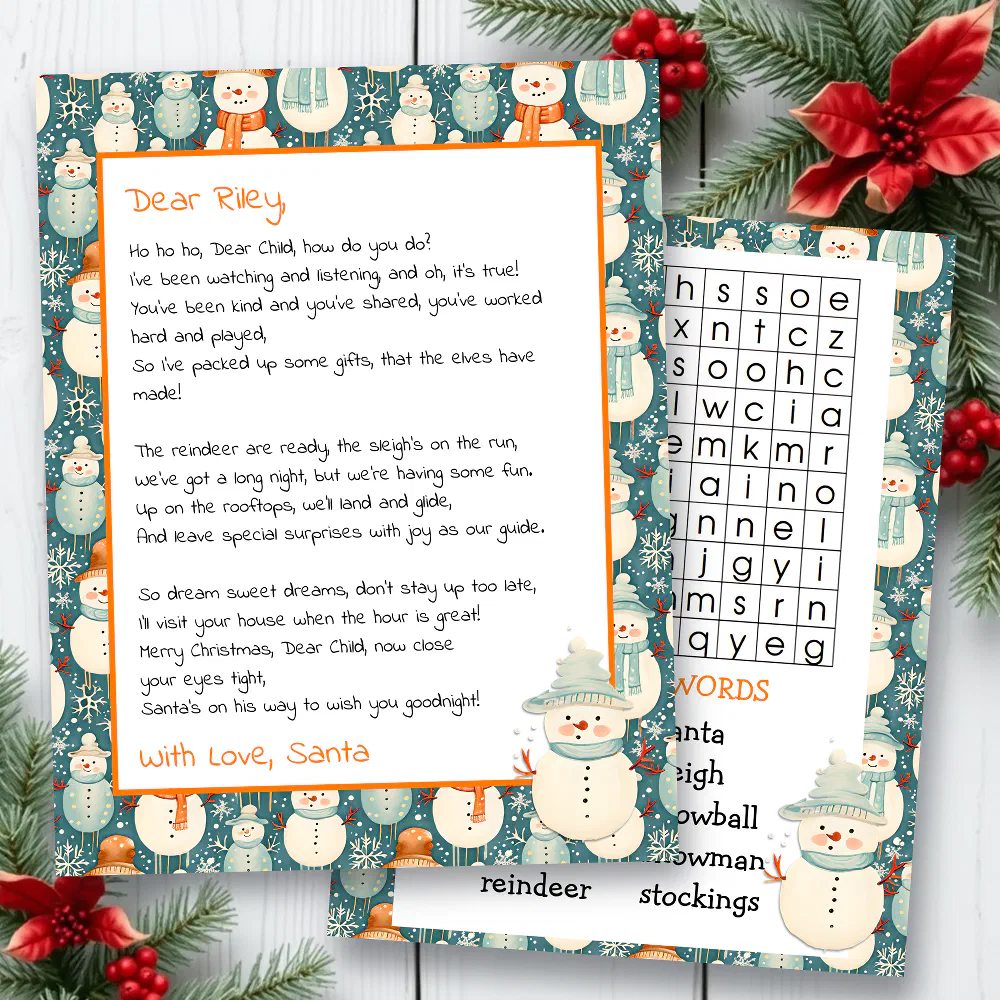 Dear Riley,
Ho ho ho, Dear Child, how do you do?
I've been watching and listening, and oh, it's true!
You've been kind and you've shared, you've worked
hard and played,
So I've packed up some gifts, that the elves have
made!
The reindeer are ready, the sleigh's on the run,
we've got a long night, but we're having some fun.
Up on the rooftops, we'll land and glide,
And leave special surprises with joy as our guide.
So dream sweet dreams, don't stay up too late,
I'll visit your house when the hour is great!
Merry Christmas, Dear Child, now close
your eyes tight,
Santa's on his way to wish you goodnight!
With Love, Santa
h s s o e
x n t c z
s o o h c
l w c i a
e m k m r
i a i n o
g n n e l
j g y i
m s r n
q y e g
WORDS
anta
eigh
owball
owman
reindeer stockings